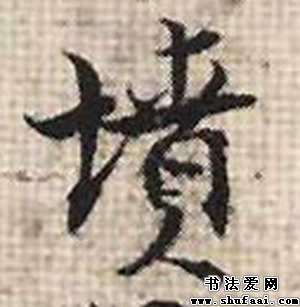 墳
书法爱网
www.shufaai.com